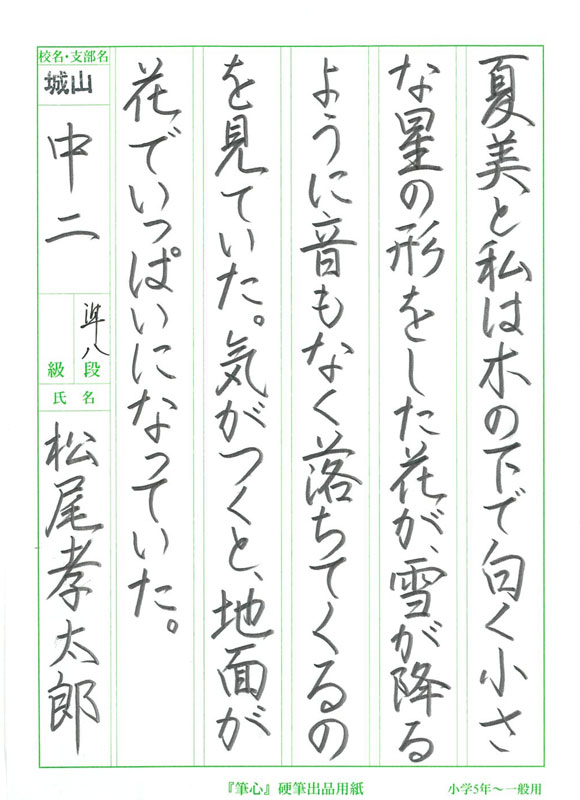 夏美と私は木の下で白く小さ
な星の形をした花が、雪が降る
ように音もなく落ちてくるの
を見ていた。気がつくと、地面が
花でいっぱいになっていた。
校名・支部名
城山
中二
準八段
級
氏名
松尾孝太郎
『筆心』硬筆出品用紙
小学5年〜一般用